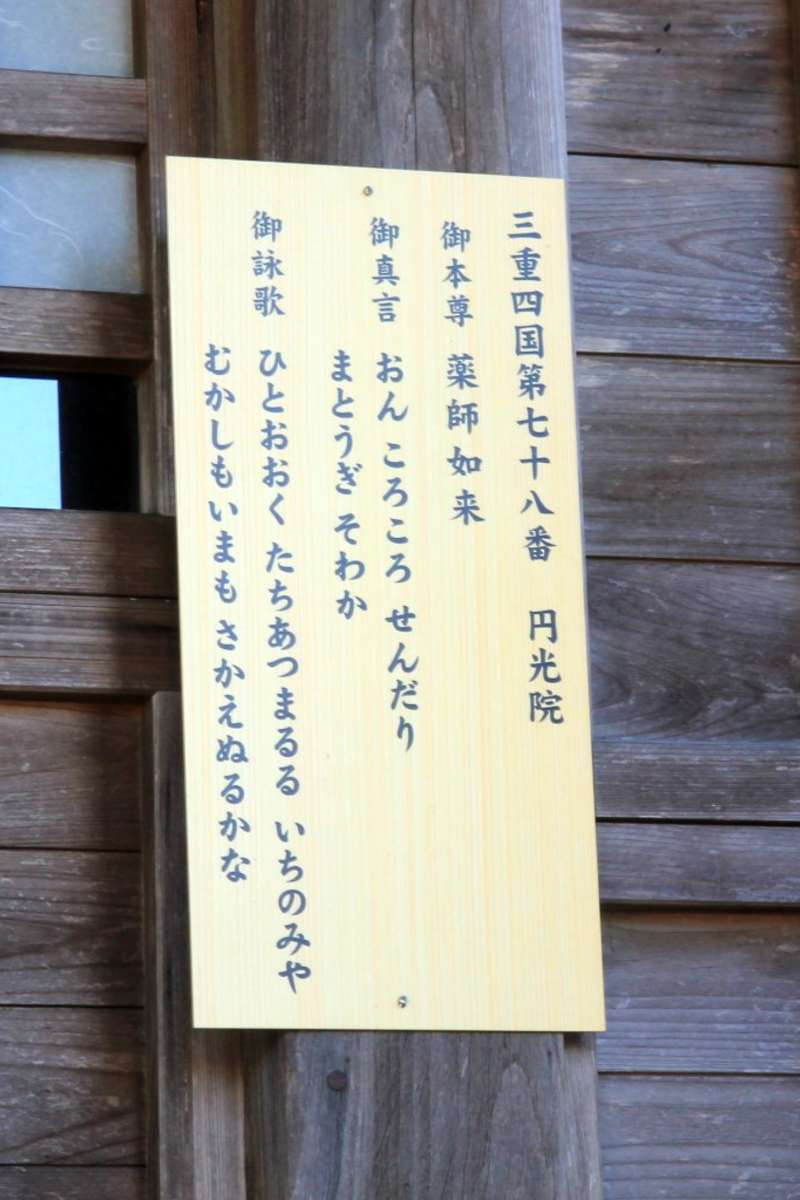 三重四国第七十八番　円光院
御本尊 薬師如来
御真言 おん ころころ せんだり
まとうぎ そわか
御詠歌 ひとおおく たちあつまるる いちのみや
むかしもいまも さかえぬるかな